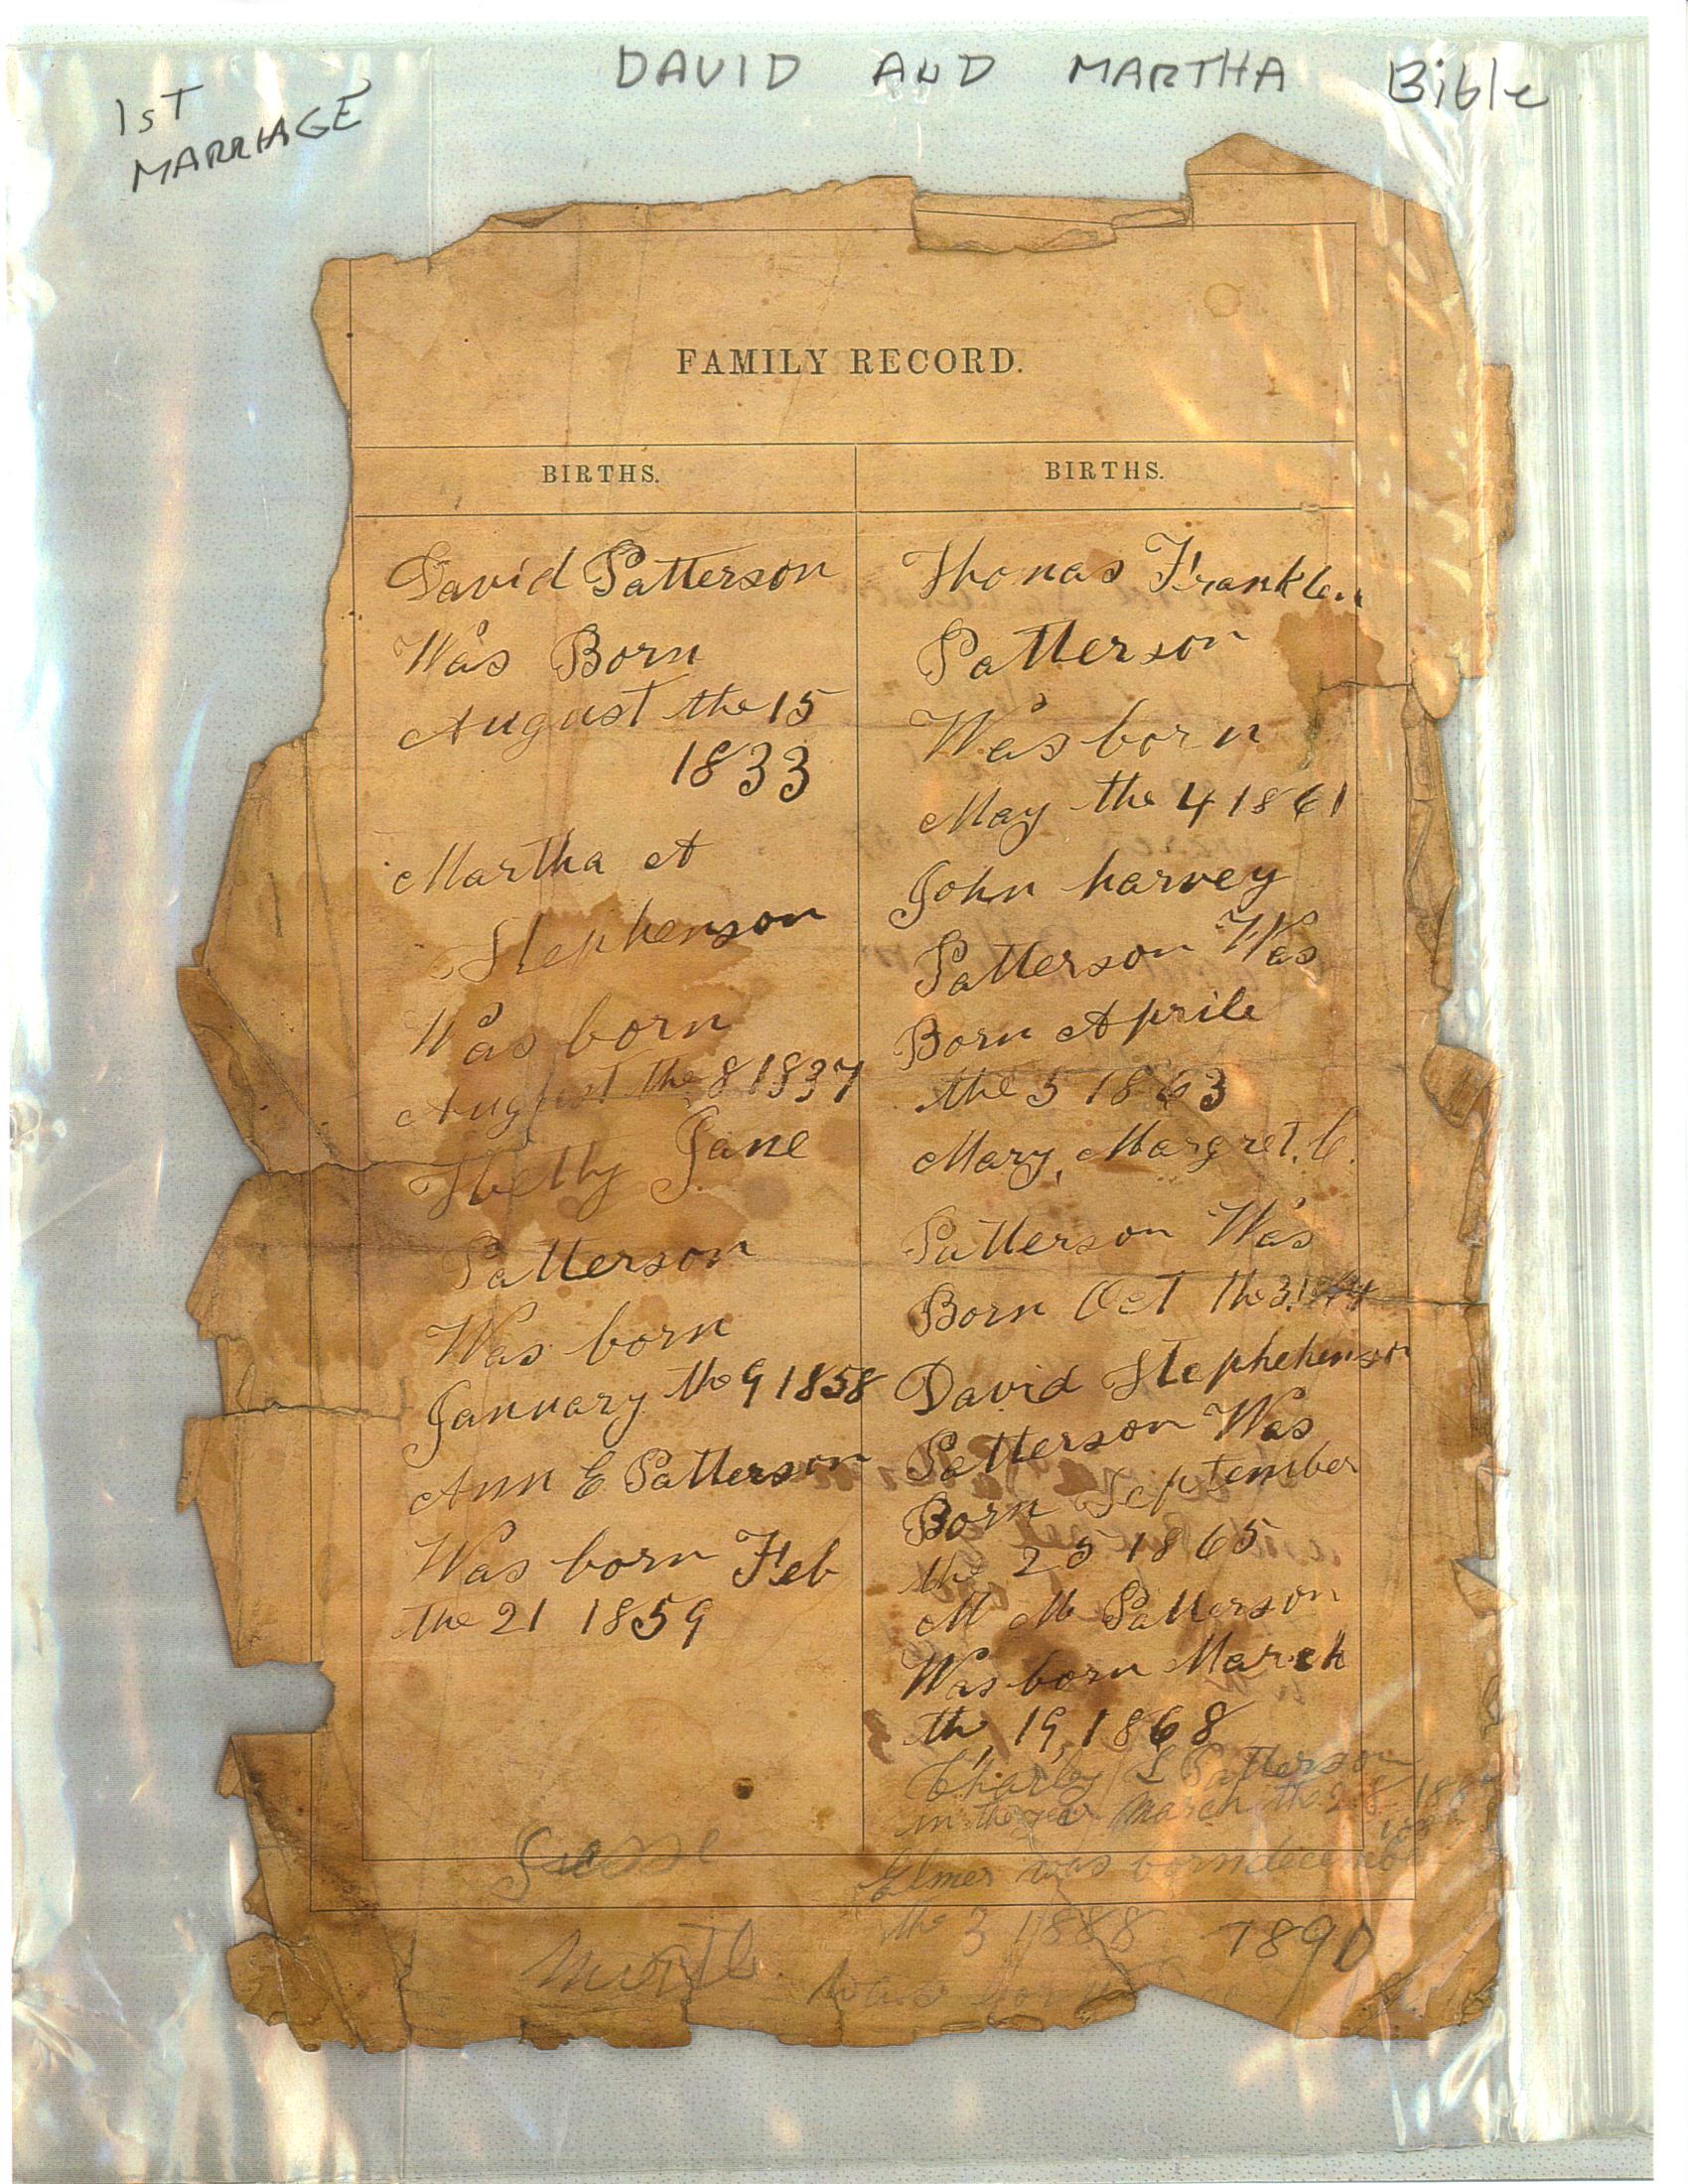 1st
MARRIAGE
DAVID AND MARTHA Bible
FAMILY RECORD.
BIRTHS.
David Patterson
Was Born
August the 15
1833
Martha A
Stephenson
Was born
August the 8 1837
Jane
Patterson
Was born
January the 9 1858
Ann E Patterson
Was born Feb
the 21 1859
BIRTHS.
Thomas Franklin
Patterson
Was born
May the 4 1861
John harvey
Patterson Was
Born Aprile
the 5 1863
Mary, Margret. C.
Patterson Was
Born Oct the 31
David Stephehenson
Patterson Was
Born September
the 25 1865
M M Patterson
Was born March
the, 19, 1868
Charley L Patterson
in the year March the 28
Elmer was born
the 3 1888 1890
was born